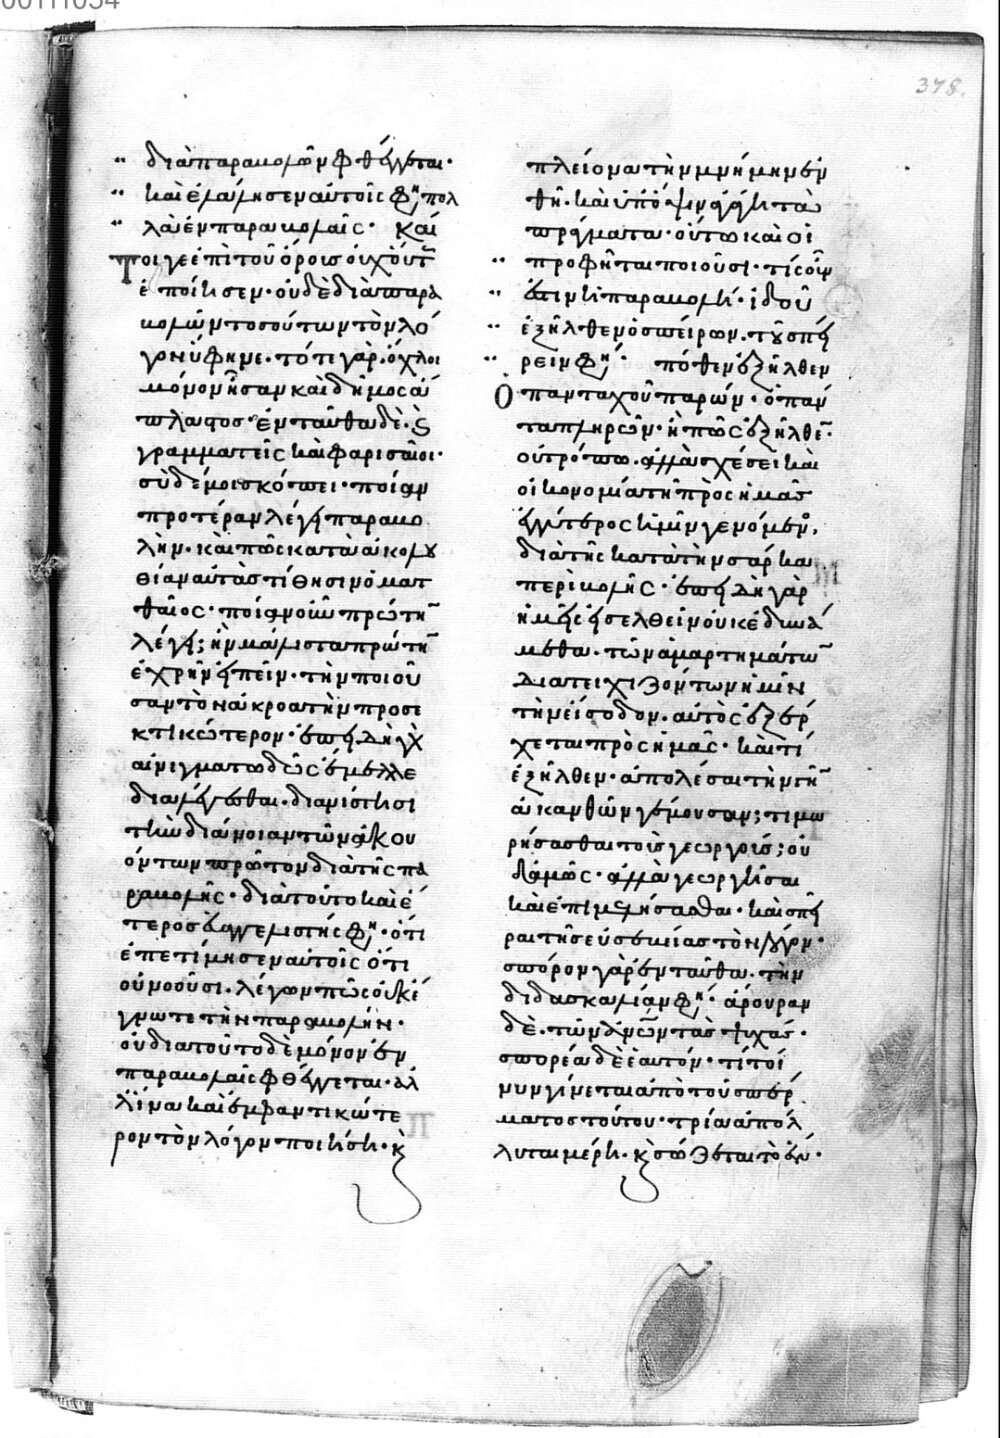 00111034
378.
διὰ παραβολῶν φθέγγεται·
καὶ ἐλάλησεν αὐτοῖς φη(σι), πολ
λὰ ἐν παραβολαῖς· Καί
τοιγε ἐπὶ τοῦ ὄρους οὐχ οὕτ(ως)
ἐποίησεν· οὐδὲ διὰ παρα
βολῶν τοσούτων τὸν λό
γον ὕφηνε· τότε γὰρ, ὄχλοι
μόνον ἦσαν καὶ δῆμος ἄ
πλαστος· ἐνταῦθα δὲ, καὶ
γραμματεῖς καὶ φαρισαῖοι·
σὺ δέ μοι σκόπει· ποίαν
προτέραν λέγει παραβο
λήν· καὶ πῶς κατὰ ἀκολου
θίαν αὐτὰς τίθησιν ὁ ματ
θαῖος· ποίαν οὖν πρώτην
λέγει; ἣν μάλιστα πρώτην
ἐχρῆν εἰπεῖν· τὴν ποιοῦ
σαν τὸν ἀκροατὴν προσε
κτικώτερον· ἐπειδὴ γὰρ
αἰνιγματωδῶς ἔμελλε
διαλέγεσθαι· διανίστησι
τὴν διάνοιαν τῶν ἀκου
όντων πρῶτον διὰ τῆς πα
ραβολῆς· διὰ τοῦτο καὶ ἕ
τερος εὐαγγελιστής φη(σι)· ὅτι
ἐπετίμησεν αὐτοῖς ὅτι
οὐ νοοῦσι· λέγων πῶς οὐκ ἔ
γνωτε τὴν παραβολήν·
οὐ διὰ τοῦτο δὲ μόνον ἐν
παραβολαῖς φθέγγεται· ἀλ
λ' ἵνα καὶ ἐμφαντικώτε
ρον τὸν λόγον ποιήσῃ· καὶ
πλείονα τὴν μνήμην ἐν
θῇ· καὶ ὑπ' ὄψιν ἀγάγῃ τὰ
πράγματα· οὕτω καὶ οἱ
προφῆται ποιοῦσι· τίς οὖν
ἐστιν ἡ παραβολή· ἰδοὺ
ἐξῆλθεν ὁ σπείρων, τοῦ σπεί
ρειν φη(σι)· πόθεν ἐξῆλθεν
ὁ πανταχοῦ παρών· ὁ πάν
τα πληρῶν· ἢ πῶς ἐξῆλθεν·
οὐ τρόπῳ, ἀλλὰ σχέσει καὶ
οἰκονομίᾳ τῇ πρὸς ἡμᾶς
ἐγγύτερος ἡμῖν γενόμενος,
διὰ τῆς κατὰ τὴν σάρκα
περιβολῆς· ἐπειδὴ γὰρ
ἡμεῖς εἰσελθεῖν οὐκ ἐδυνά
μεθα· τῶν ἁμαρτημάτων
διατειχιζόντων ἡμῖν
τὴν εἴσοδον· αὐτὸς ἐξέρ
χεται πρὸς ἡμᾶς· καὶ τί
ἐξῆλθεν· ἀπολέσαι τὴν γῆν
ἀκανθῶν γέμουσαν; τιμω
ρήσασθαι τοὺς γεωργούς; οὐ
δαμῶς· ἀλλὰ γεωργῆσαι
καὶ ἐπιμελήσασθαι· καὶ σπεῖ
ραι τῆς εὐσεβείας τὸν λόγον·
σπόρον γὰρ ἐνταῦθα, τὴν
διδασκαλίαν φη(σι)· ἄρουραν
δὲ, τῶν ἀν(θρώπ)ων τὰς ψυχάς·
σπορέα δὲ ἑαυτόν· τί τοί
νυν γίνεται ἀπὸ τοῦ σπέρ
ματος τούτου· τρία ἀπόλ
λυται μέρη· καὶ σώζεται τὸ ἕν·